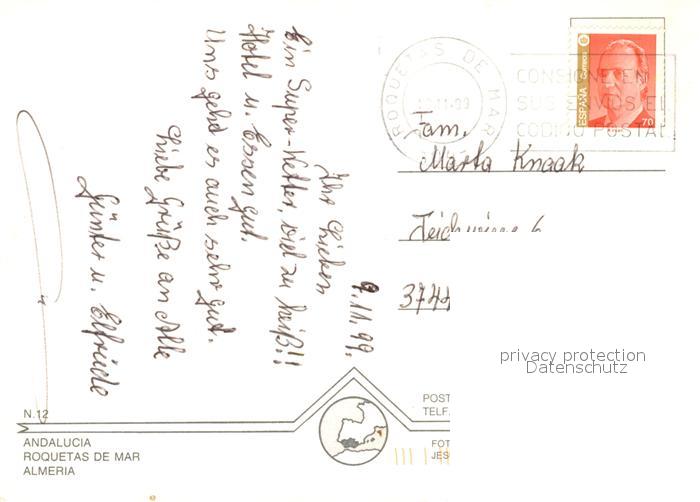 9.11.99.
Ihr Lieben
Ein Super-Wetter, viel zu heiß!!
Hotel u. Essen gut.
Uns geht es auch sehr gut.
Liebe Grüße an Alle
Günter u. Elfriede
ROQUETAS DE MAR
11-99
CONSIGNE EN
SUS ENVIOS EL
CODIGO POSTAL
ESPAÑA
Correos
70
Fam.
Marta Knaak
6
privacy protection
Datenschutz
N.12
ANDALUCIA
ROQUETAS DE MAR
ALMERIA
POST
TELF.
FOT
JES